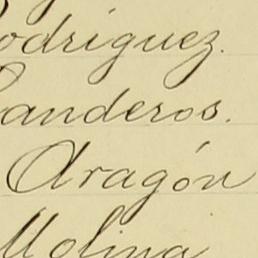 odriguez.
anderos.
Aragón
Molina